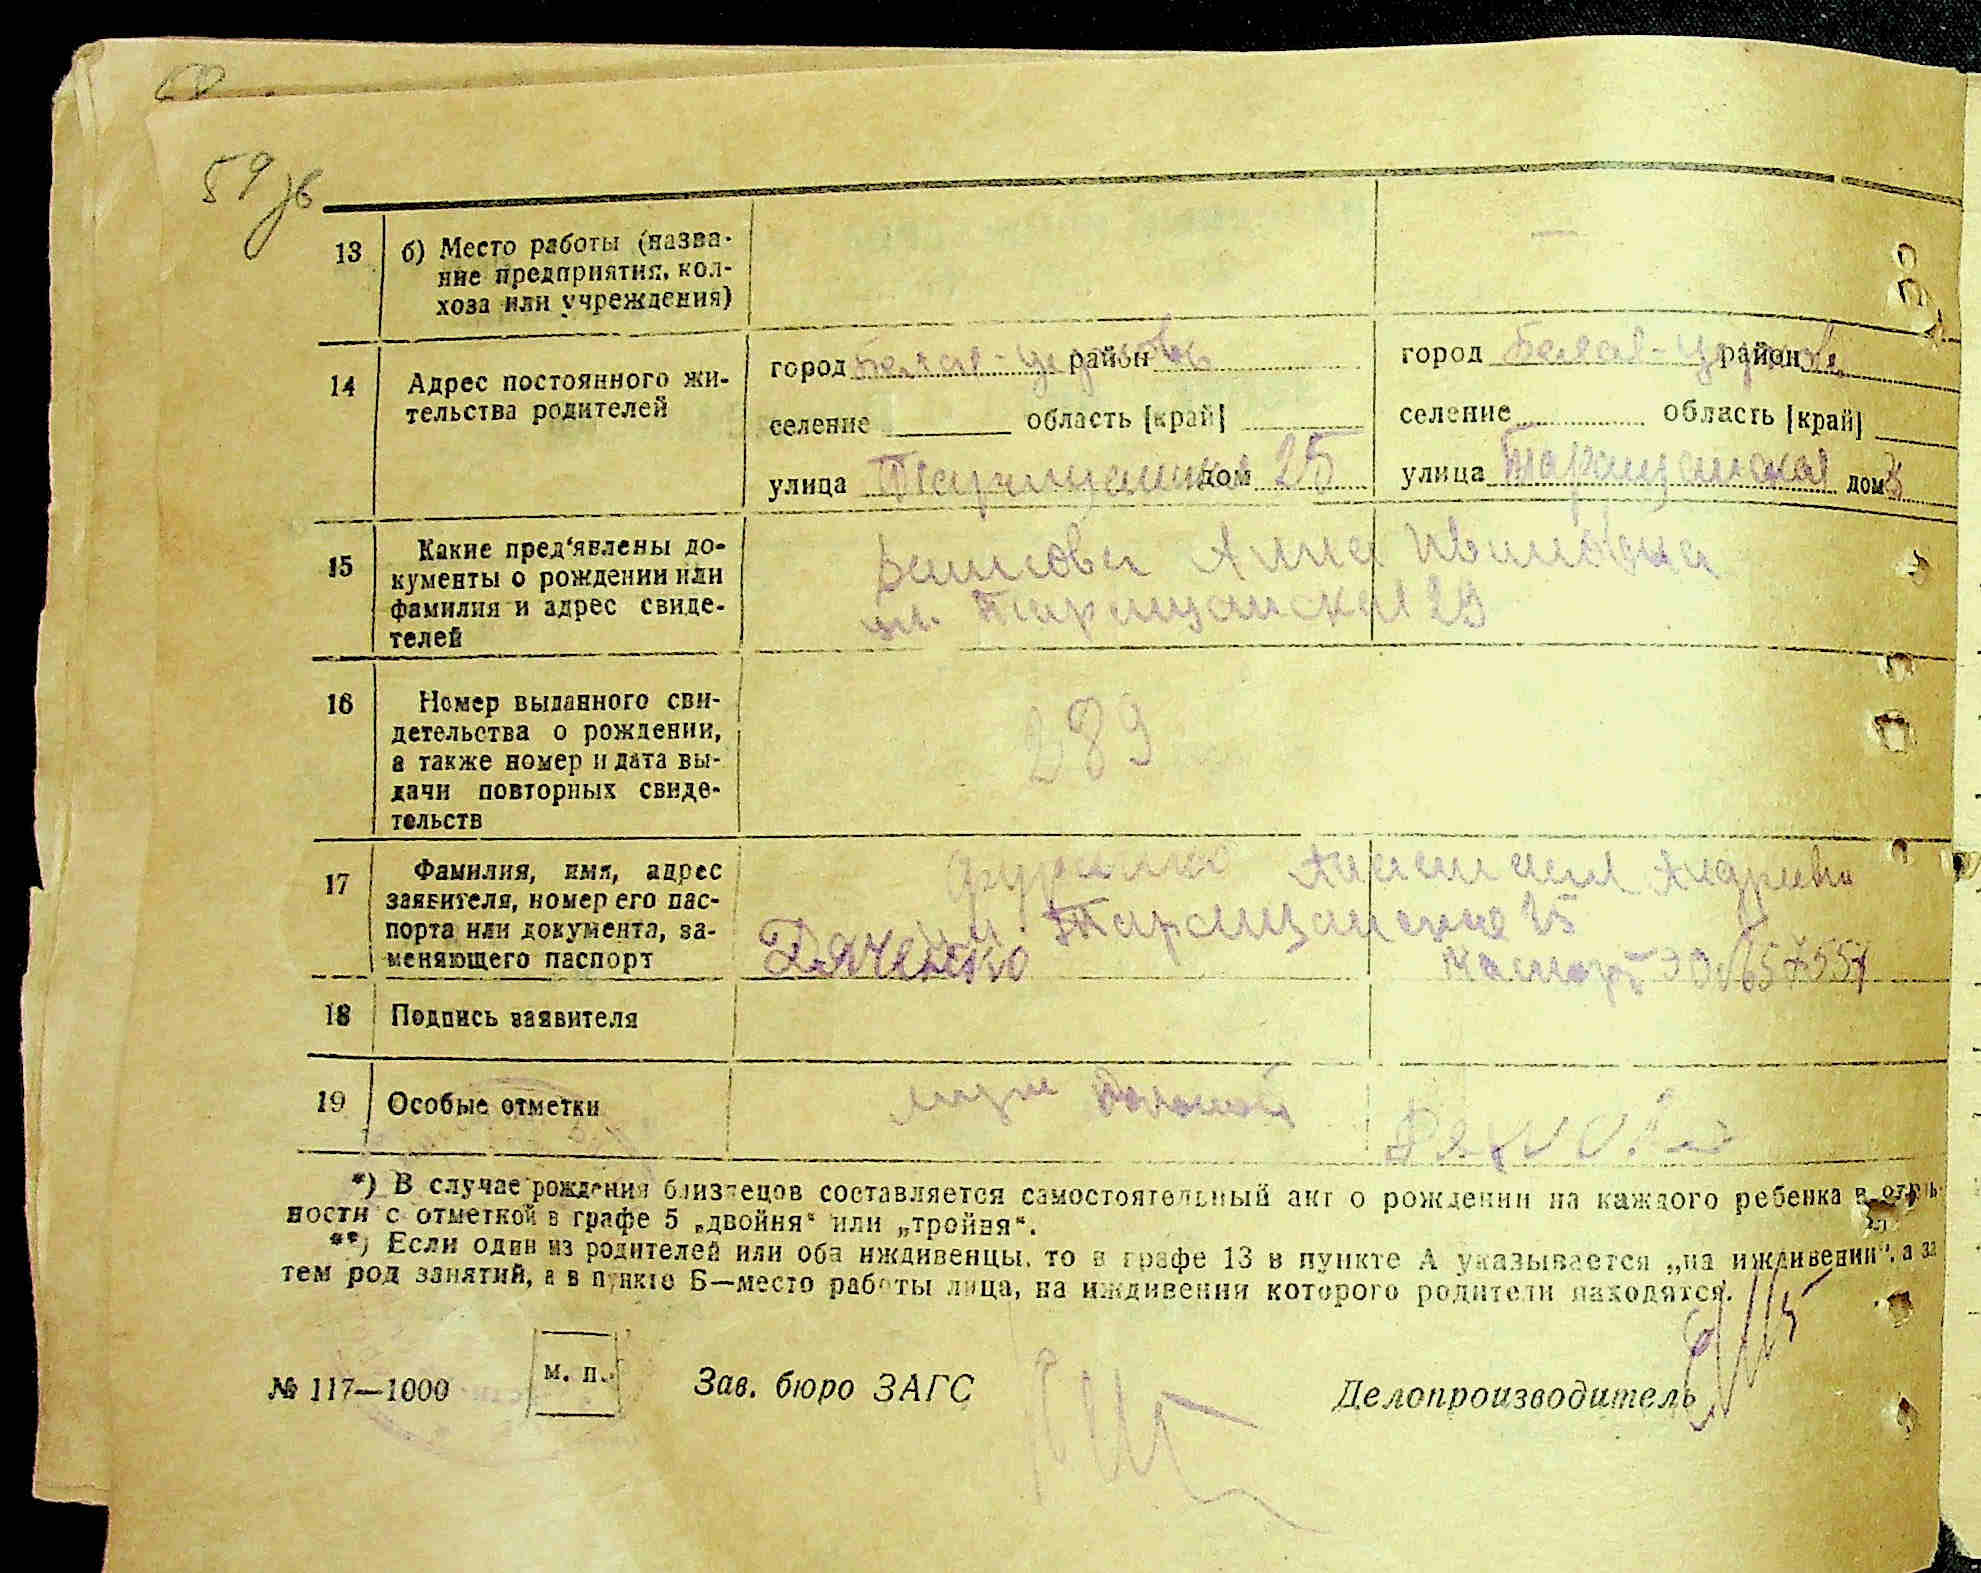 59 зв
13 б) Место работы (назва-
ние предприятия, кол-
хоза или учреждения)
14 Адрес постоянного жи-
тельства родителей
город Белая-Церковь район
селение область [край]
улица Таращанская дом 25
город Белая-Церковь район
селение область [край]
улица Таращанская дом
15 Какие пред'явлены до-
кументы о рождении или
фамилия и адрес свиде-
телей
Анна Ивановна
ул. Таращанская 29
16 Номер выданного сви-
детельства о рождении,
а также номер и дата вы-
дачи повторных свиде-
тельств
289
17 Фамилия, имя, адрес
заявителя, номер его пас-
порта или документа, за-
меняющего паспорт
Анастасия Андреевна
Таращанская 25
Дяченко
Паспорт
18 Подпись заявителя
19 Особые отметки
*) В случае рождения близнецов составляется самостоятельный акт о рождении на каждого ребенка в отдель-
ности с отметкой в графе 5 „двойня“ или „тройня“.
**) Если один из родителей или оба иждивенцы, то в графе 13 в пункте А указывается „на иждивении“, а за
тем род занятий, а в пункте Б—место работы лица, на иждивении которого родители находятся.
№ 117—1000
м. п.
Зав. бюро ЗАГС
Делопроизводитель